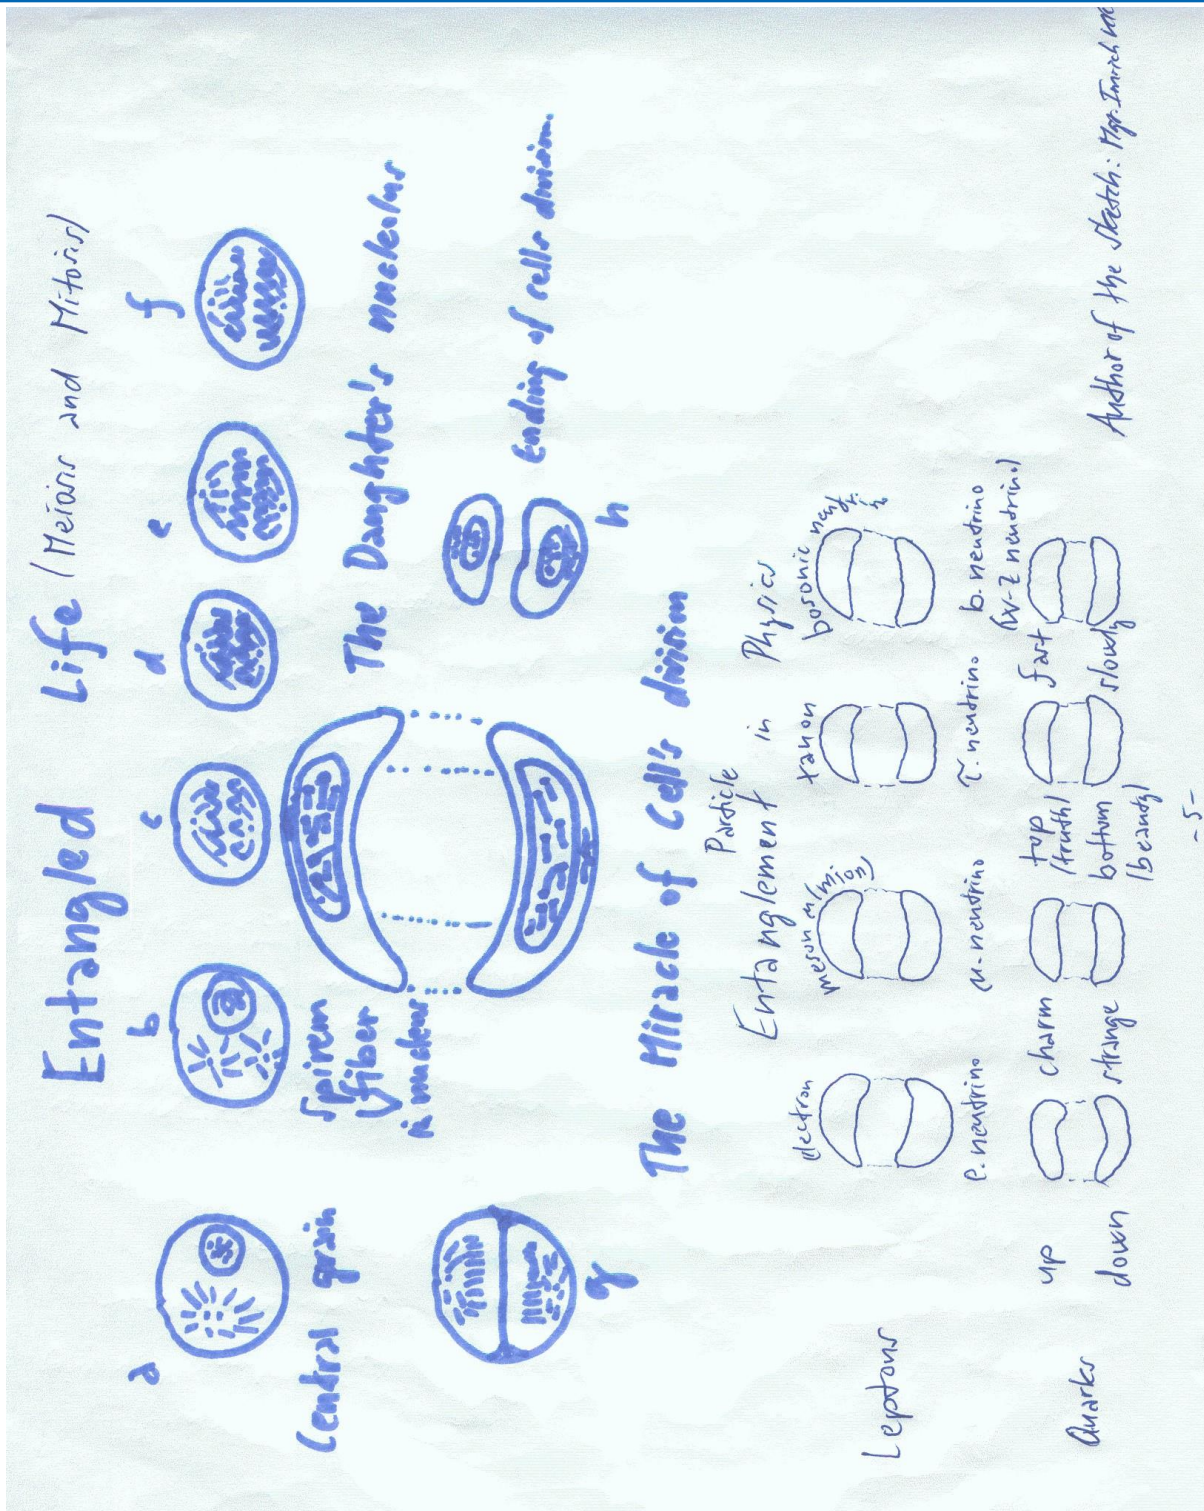 Entangled Life (Meiosis and Mitosis)
a b c d e f
Central grain
Spirem
fiber
in nuclear
The Daughter's nucleolus
g
h
Ending of cells division.
The Miracle of Cell's division
Particle
Entanglement in Physics
electron
meson
tauon
bosonic
Leptons
e. neutrino
μ-neutrino
τ. neutrino
b. neutrino
(W-Z neutrino)
Quarks
up
down
charm
strange
top
(truth)
bottom
(beauty)
fast
slowly
Author of the Sketch: Mgr. Imrich
-5-